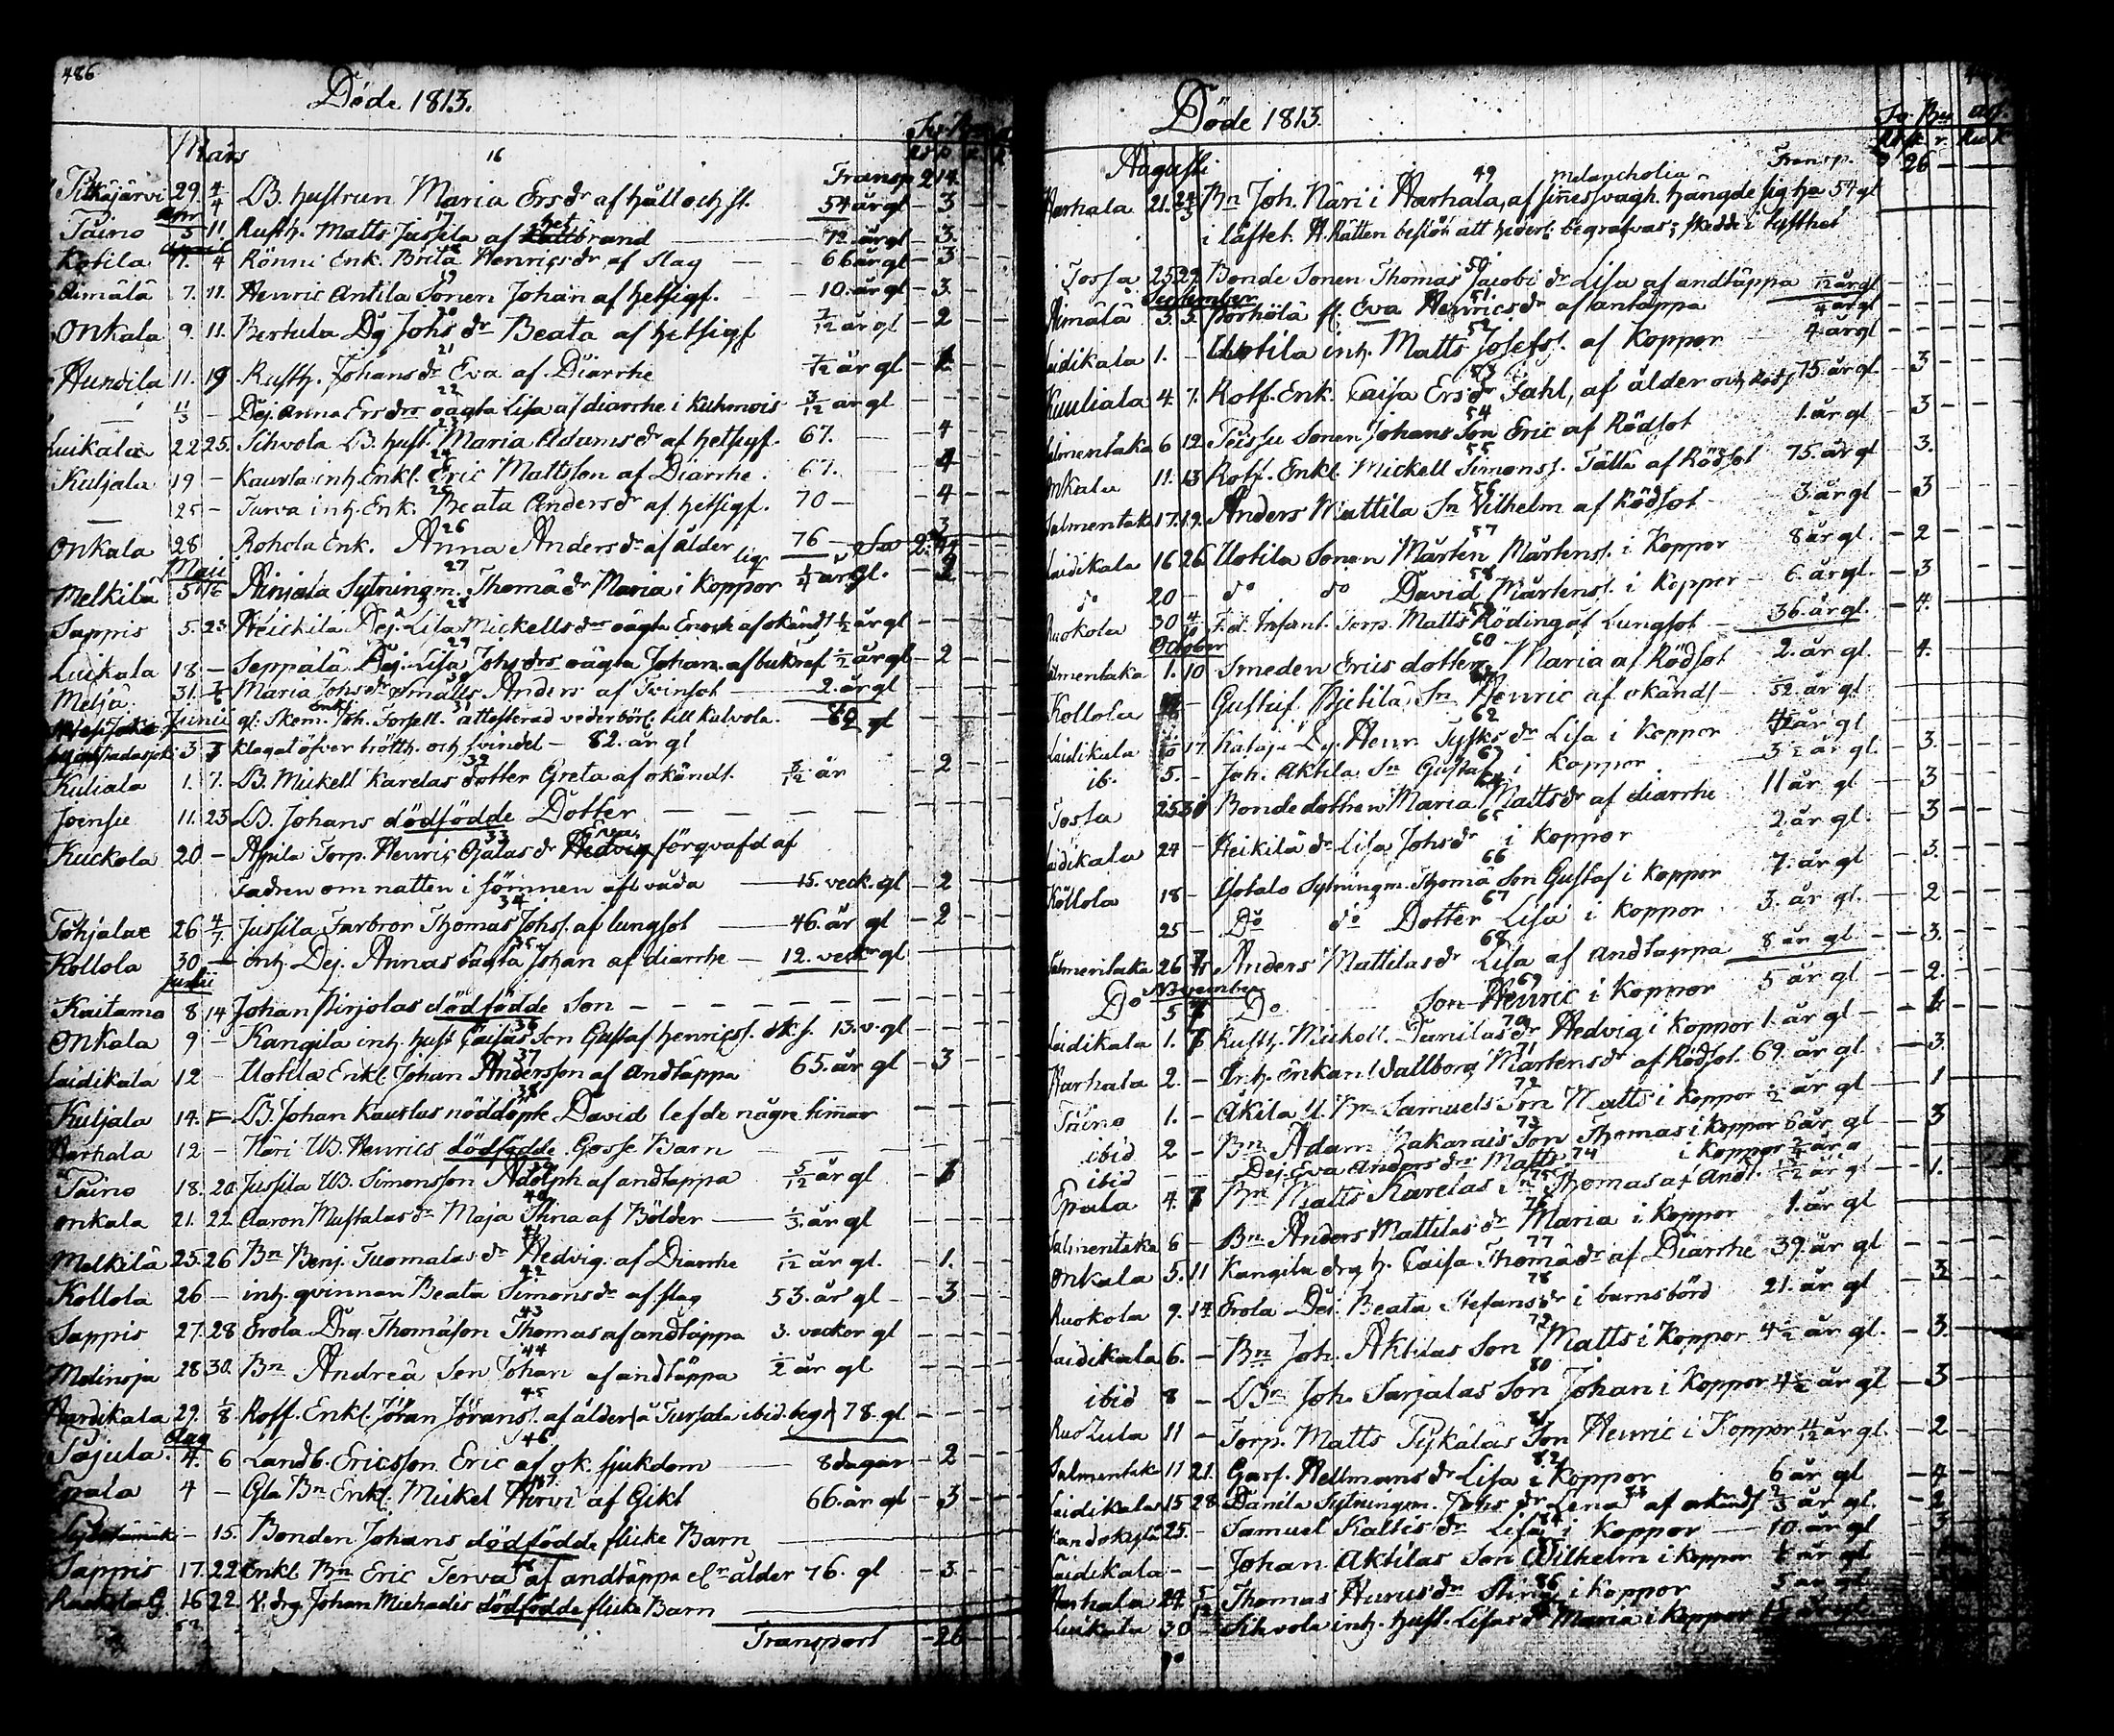 486
Döde 1813.
Mars
16
Transp 2 14
Pitkäjärvi 29. 4/4 LB. hustrun Maria Ersdr af håll och st. 54 år gl - 3
17
Täino 5 11. Rusth. Matts Jussila af hetbrand 72 år gl - 3.
April
18
Kotila 7. 4 Rönni Enk. Brita Henricsdr af slag 66 år gl - 3
19
Äimälä 7. 11. Henric Antila Sonen Johan af hetsigf. 10. år gl - 3.
20
Onkala 9. 11. Bertula Dg Johs dr Beata af hetsigf 7/12 år gl - 2
21
Hunoila 11. 19 Rusth. Johans dr Eva af Diarrhe 7/12 år gl
22
11/3 - Dej. Anna Ersdrs oägta Lisa af diarrhe i Kuhmois 3/12 år gl
23
Luikala 22 25. Sihvola LB. hust. Maria Adamsdr af hetsigf. 67. - 4
24
Kuljala 19 - Kaurla inh. Enkl. Eric Mattsson af Diarrhe. 67. - 4
25
25 - Turva inh. Enk. Beata Andersdr af hetsigf. 70 - 4
26
Onkala 28 Rohola Enk. Anna Andersdr af ålder 76 -
Maii
27
Melkilä 5 Äinjälä Sytningm. Thomä dr Maria i Koppor 1/4 år gl.
28
Sappis 5. 23 Heickilä Dej. Lisa Mickellsdrs oägta Enoch af okändt 1/2 år gl
29
Luikala 18 - Seppälä Dej. Lisa Johsdrs oägta Johan af bukref 1/2 år gl - 2
30
Melja 31. 7/6 Maria Johsdr Smälts Anders af Tvinsot 2. år gl
Junii
31
gl. Skem. Enkl. Joh. Forsell. attesterad vederbörl. till Kalvola. 82 gl
3 7 Klagat öfver trötth. och svindel - 82. år gl
32
Kuliala 1. 7. LB. Mickell Karelas dotter Greta af okändt. 5/12 år - 2
Joensu 11. 23 LB. Johans dödfödde Dotter
33
Kuckola 20 - Apila Torp. Henric Ojalas dr förqvafd af
Fadren om natten i sömnen afl våda 15. veck. gl - 2
34
Tohjala 26 4/7 Jussila Farbror Thomas Johs. af lungsot 46. år gl - 2
35
Kollola 30 - inh. Dej. Annas oägta Johan af diarrhe 12. veckr gl
Julii
Kaitamo 8 14 Johan Pirjolas dödfödde Son
36
Onkala 9 - Kangila inh. hust Caisas Son Gustaf Henrics. ok. s. 13. v. gl
37
Laidikala 12 Uotila Enkl. Johan Andersson af andtäppa 65. år gl - 3
38
Kuljala 14. - LB. Johan Kaurlas nöddöpte David lefde några timar
Harhala 12 - Näri UB. Henrics dödfödde Gosse Barn
39
Täino 18. 20 Jussila UB. Simonsson Adolph af andtäppa 5/12 år gl
40
Onkala 21. 22 Aaron Mustalas dr Maja Stina af Bölder 1/3. år gl
41
Melkilä 25. 26 Bn Benj. Tuomalas dr Hedvig. af Diarrhe 1/12 år gl. - 1.
42
Kollola 26 - inh. qvinnan Beata Simonsdr af slag 53. år gl - 3
43
Sappis 27. 28 Erola Drg. Thomäson Thomas af andtäppa 3. veckor gl
44
28 30. Bn Andreä Son Johan af andtäppa 1/2 år gl
45
Hardikala 29. 1/8 Roff. Enkl. Jöran Jörans. af ålder (å Tursala ibid. begr) 78. gl.
Aug
46
Tajula 4. 6 Landb. Ericsson Eric af ok. sjukdom 8 dagar - 2
47
Epala 4 - Gla Bn Enkl. Mickel Hirvi af Gikt 66. år gl - 3
- 15. Bonden Johans dödfödde flicke Barn
48
Sappis 17. 22 Enkl. Bn Eric Terva af andtäppa el. ålder 76. gl - 3.
Ruokola G 16 22 V. drg Johan Michaelis dödfödde flicke Barn
Transport - 26
Döde 1813.
Augusti
Transp. 26
49
Melancholia
Harhala 21. Bn Joh. Näri i Harhala, af sinessvagh. hängde sig 54 gl
i låftet. H. Rätten beslöt att hederl. begrafvas; skedde i tysthet
50
Jossa 25 29. Bonde Sonen Thomas Jacobi dr Lisa af andtäppa 1/12 år gl
September
51.
Äimälä 3. 5. Porhölä fl. Eva Henricsdr af antäppa 4 år gl
52
Laidikala 1. - Uotila inh. Matts Josefs. af Koppor 4. år gl
53
Kuuliala 4. 7. Rotf. Enk. Caisa Ersdr Sahl, af ålder och Röds 75. år gl - 3
54
Salmentaka 6 12 Peissu Sonen Johans Son Eric af Rödsot 1. år gl - 3
55
Onkala 11. 13 Rotf. Enkl. Mickell Simons. Tätta af Rödsot 75. år gl - 3.
56
Salmentaka 17. 19. Anders Mattila Sn Vilhelm af Rödsot 3. år gl - 3
57
Laidikala 16 26 Uotila Sonen Mårten Mårtens. i Koppor 8 år gl. - 2
58
do 20 - do do David Mårtens. i Koppor 6. år gl. - 3
59
Ruokola 30 4/10 F. d. Infant. Torp. Matts Röding af Lungsot 36. år gl. - 4.
October
60
Salmentaka 1. 10 Smeden Erics dotter Maria af Rödsot 2. år gl - 4.
61
Kollola - Gustaf Pietilä Sn Henric af okändt år gl
62
Laidikala 17. Kataja Dg. Henr. Tysks dr Lisa i Koppor år gl
63
ib. 5. - Joh. Aktila Sn Gustaf i Koppor 3 1/2 år gl - 3.
64
Jossa 25 30 Bonde dottern Maria Mattsdr af diarrhe 11 år gl - 3
65
Laidikala 24 - Heikilä dr Lisa Johsdr i Koppor 2. år gl. - 3
66
Kollola 18 - Isotalo Sytningm. Thomä Son Gustaf i Koppor 7. år gl - 3.
67
25 - Do do Dotter Lisa i Koppor 3. år gl - 2
68
Salmentaka 26 Anders Mattilas dr Lisa af Andtäppa 8 år gl - 3.
November
69
Do 5 Do Son Henric i Koppor 5 år gl - 2.
70
Laidikala 1. 7 Rusth. Mickell Danilas dr Hedvig i Koppor 1. år gl
71
Harhala 2. - Inh. änkan Vallborg Mårtensdr af Rödsot. 69. år gl - 3.
72
Täino 1. - Äkilä U. Bn Samuels Son Matts i Koppor 1/2 år gl - 1
73
ibid 2 - Bn Adam Zakarais Son Thomas i Koppor 6 år gl - 3
74
ibid - Dej. Eva Andersdrs Matts i Koppor
75
Epala 4. 7 Bn Matts Karelas Sn Thomas af Andt. 1/2 år gl - 1.
76
Salmentaka 6 - Bn Anders Mattilas dr Maria i Koppor 1. år gl
77
Onkala 5. 11 Kangila drg h. Caisa Thomädr af Diarrhe 39. år gl
78
Ruokola 9. 14 Erola Dej. Beata Stefansdr i barnsbörd 21. år gl - 3
79
Laidikala 6. - Bn Joh. Aktilas Son Matts i Koppor 4 1/2 år gl. - 3.
80
ibid 8 - Bn Joh. Sarjalas Son Johan i Koppor 4 1/2 år gl - 3
81
11 - Torp. Matts Tykälas Son Henric i Koppor 4 1/2 år gl. - 2
82
Salmentaka 11 21. Garf. Hellmans dr Lisa i Koppor 6 år gl - 4
83
Laidikala 15 28 Danila Sytningm. Johs dr Lena af okändt 2/3 år gl. - 2
84
25. - Samuel Kaltis dr Lisa i Koppor 10. år gl - 3
Laidikala - - Johan Aktilas Son Wilhelm i Koppor år gl
86
Harhala 24. 5/12 Thomas Hurus dr Stina i Koppor 5 år gl
Luikala 30 - Sihvola inh. hust. Lisas dr Maria i Koppor